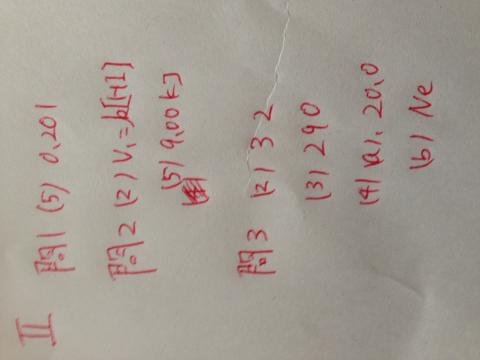 II
問1 (5) 0.201
問2 (2) V₁=k[H]
(5) 9.00kJ
問3 (2) 32
(3) 290
(4) (a). 20.0
(b) Ne